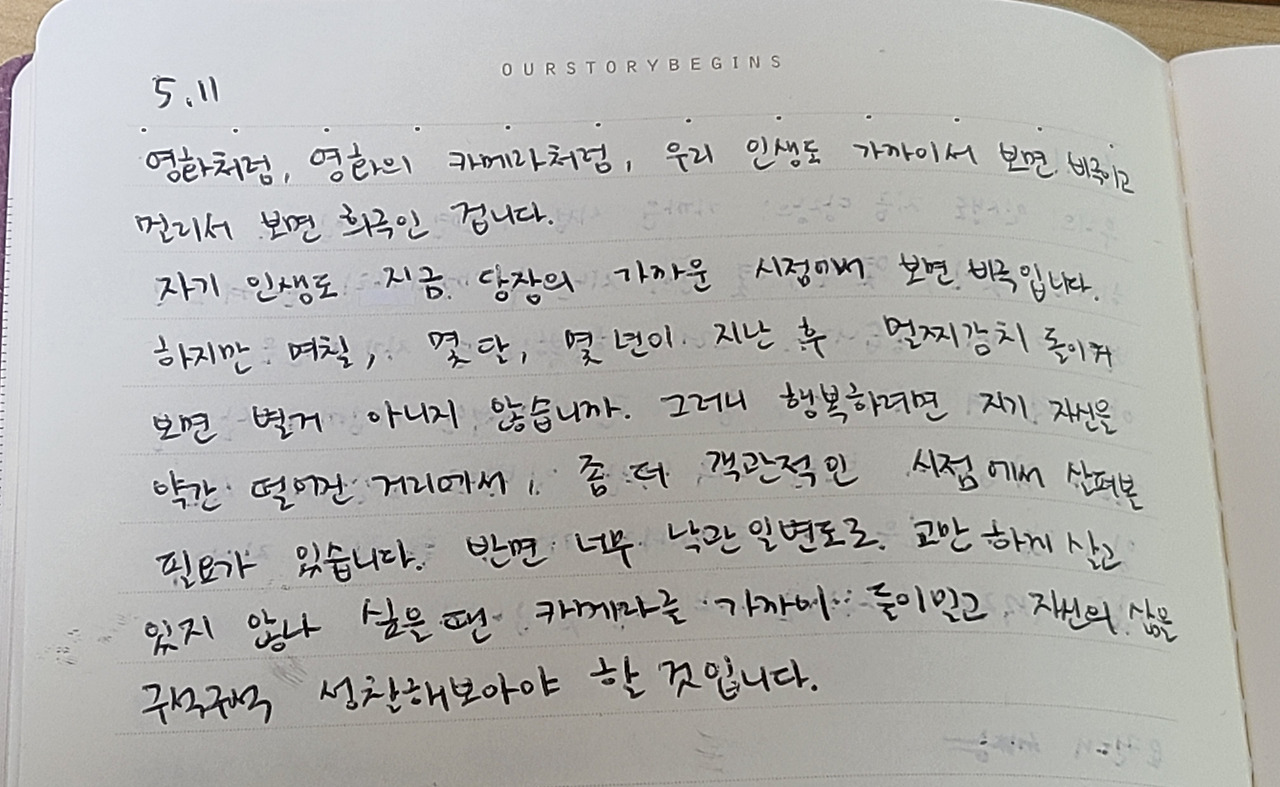 OURSTORYBEGINS
5.11
영화처럼, 영화의 카메라처럼, 우리 인생도 가까이서 보면 비극이고
멀리서 보면 희극인 겁니다.
자기 인생도 지금 당장의 가까운 시점에서 보면 비극입니다.
하지만 며칠, 몇 달, 몇 년이 지난 후 멀찌감치 돌이켜
보면 별거 아니지 않습니까. 그러니 행복하려면 자기 자신을
약간 떨어진 거리에서, 좀 더 객관적인 시점에서 살펴볼
필요가 있습니다. 반면 너무 낙관 일변도로 교만하게 살고
있지 않나 싶을 땐 카메라를 가까이 들이밀고 자신의 삶을
구석구석 성찰해보아야 할 것입니다.